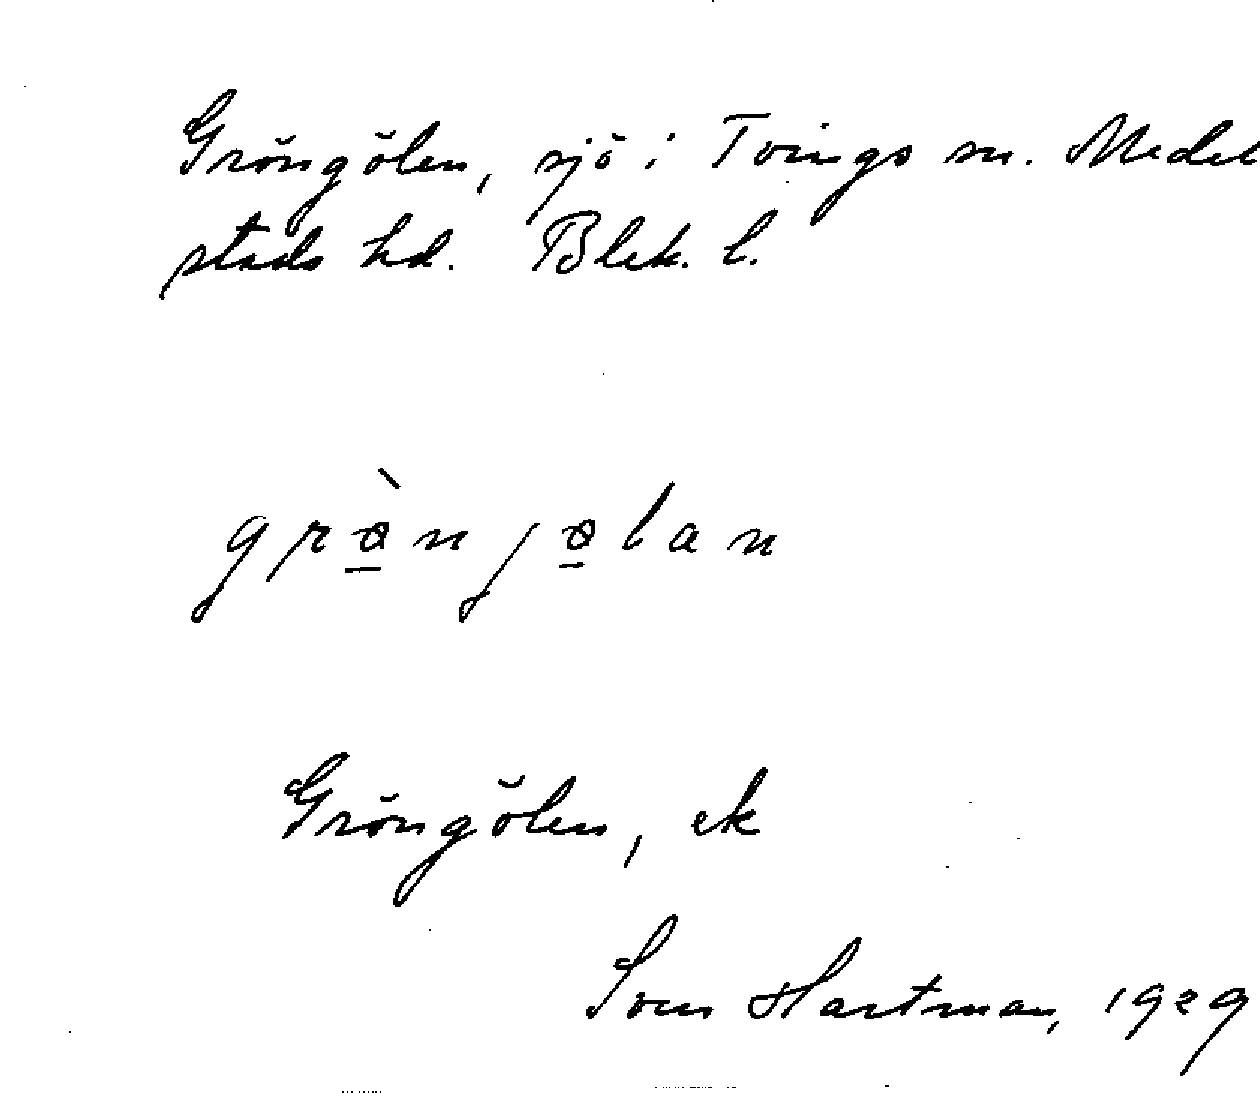 Gröngölen, sjö i Tvings sn. Medel
stads hd. Blek. l.
grø̠̀njø̠lan
Gröngölen, ek
Sven Hartman, 1929